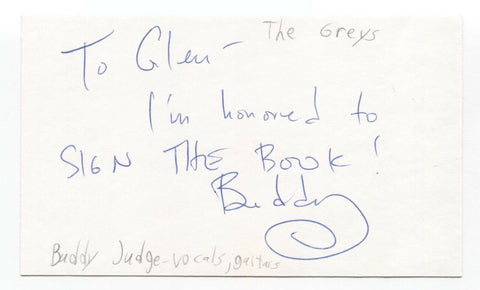 The Greys
To Glen -
I'm honored to
SIGN THE BOOK!
Buddy
Buddy Judge-vocals, guitars